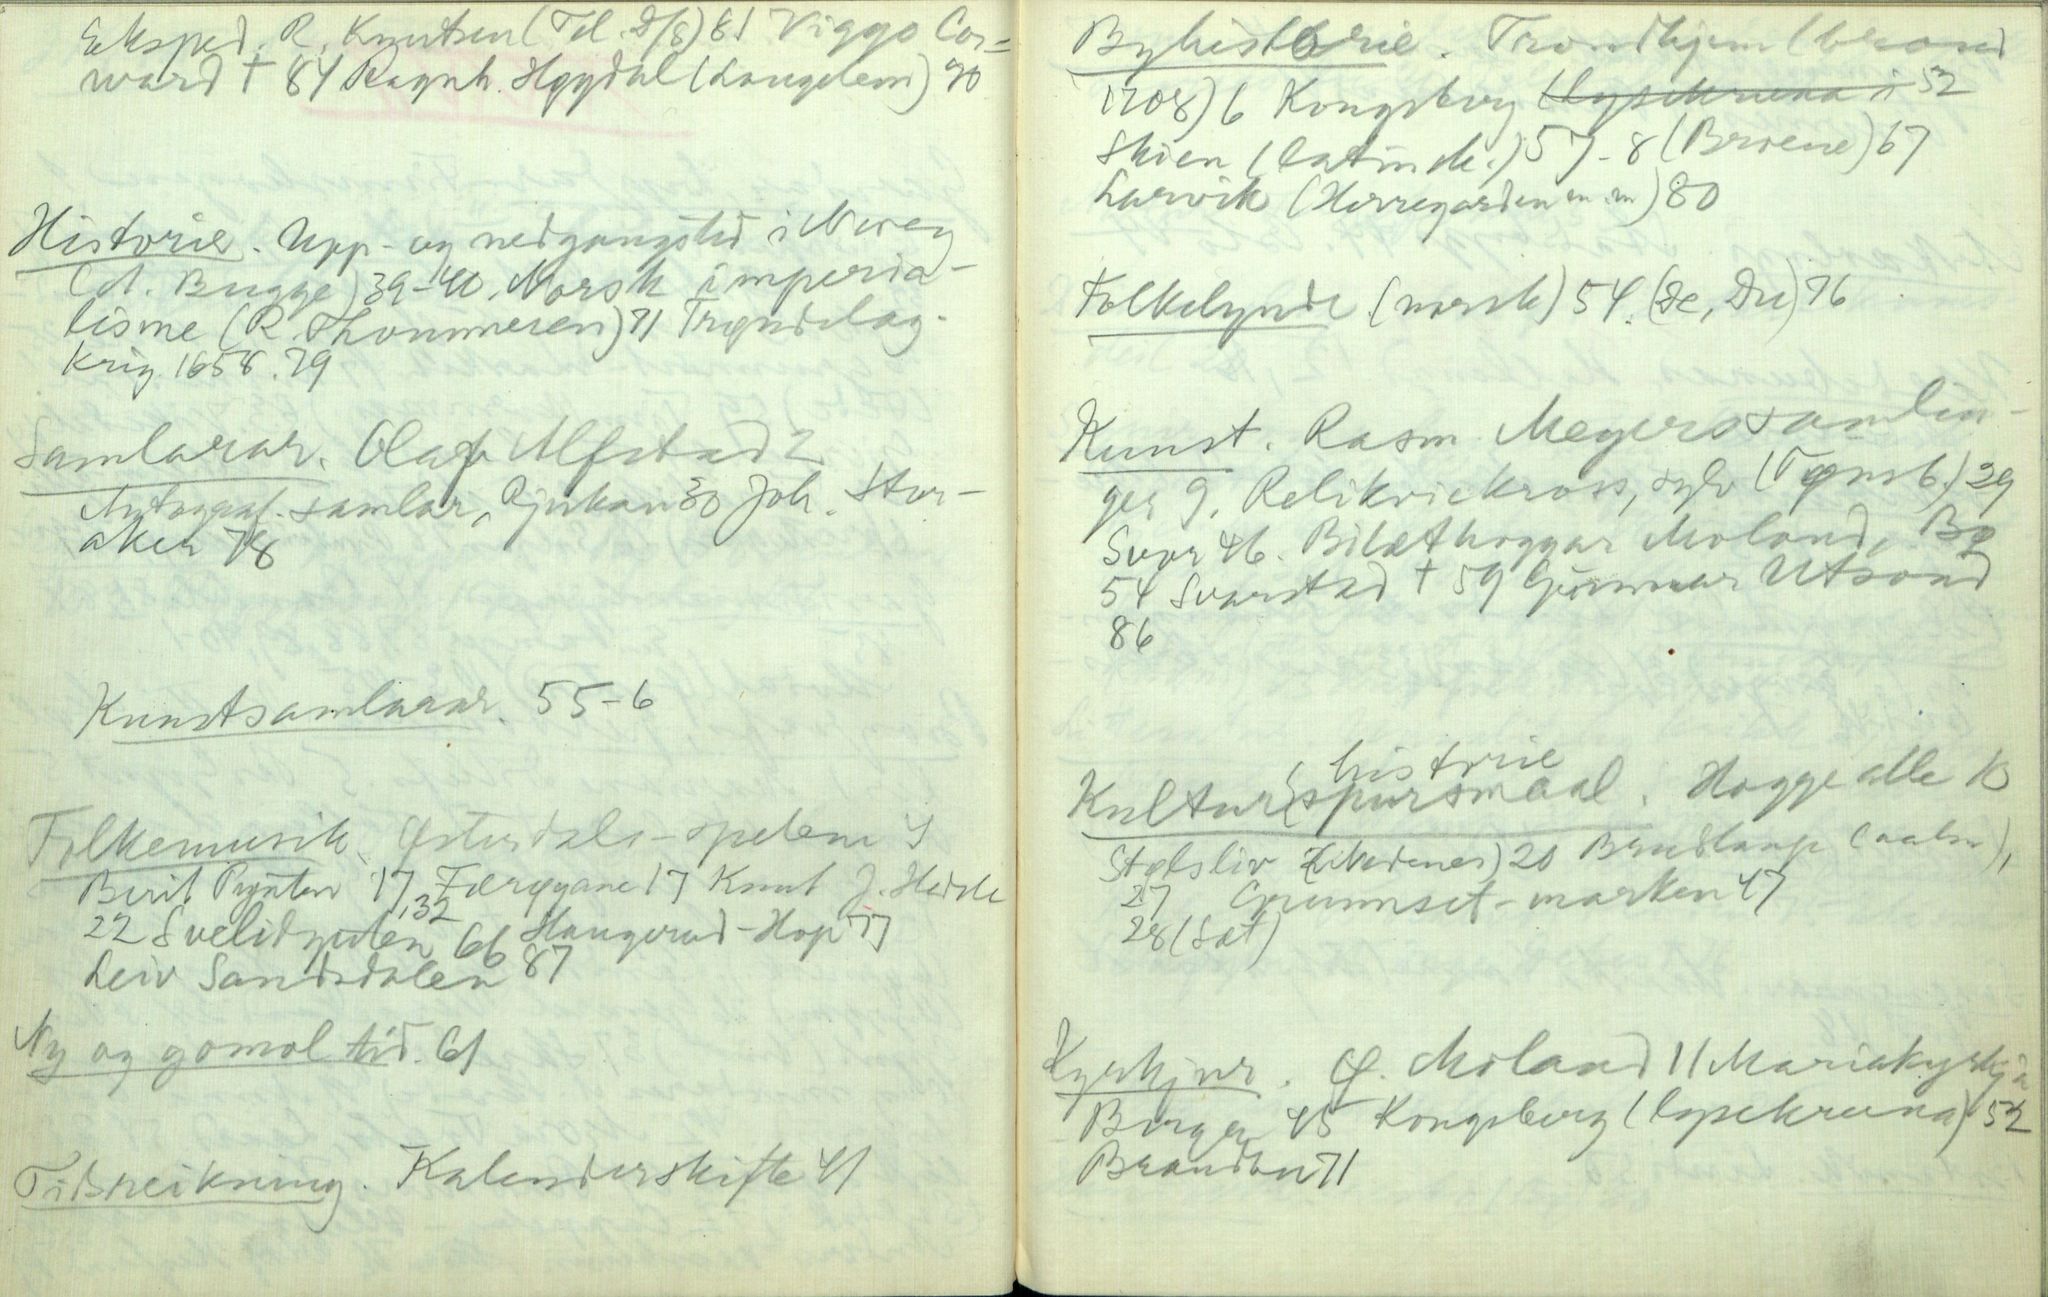 Eksped. R. Knutsen (Tel. D/s) 81 Viggo Cor=
ward † 84 Ragnh. Høydal (Laugelem) 90
Historie. Upp- og nedgangstid i Noreg
(A. Bugge) 39-40. Norsk imperia-
lisme (R. Thommesen) 71 Trøndelag.
krig 1658. 79
Samlarar. Olaf Alfstad 2
Autograf-samlar, Rjukan 30 Joh. Stor-
aker 78
Kunstsamlarar. 55-6
Folkemusik. Østerdals-spelem 4
Berit Pynten 17, 32 Færøyane 17 Knut J. Heddle
22 Svelidguten 66 Haugerud-Hop 77
Leiv Sandsdalen 87
Ny og gomol tid. 61
Tidsreikning. Kalenderskifte 41
Byhistorie. Trondhjem (brand
1708) 6 Kongsberg (lysekruna i 52
Skien (latinsk.) 57-8 (Briene) 67
Larvik (Herregarden m.m) 80
Folkelynde (norsk) 54. (De, Du) 76
Kunst. Rasm. Meyers samlin-
ger 9. Relikviekross, sylv (Tønsb.) 29
Svor 46. Bilæthoggar Moland, Bø
54 Svarstad † 59 Gunnar Utsond
86
Kultur(historie
spursmaal. Hogge alle 10
Stølsliv 20 Brudlaup (aalm),
27 Grunnset-marken 47
28 (Set)
Kyrkjur. Ø. Moland 11 Mariakyrkja
Bergen 45 Kongsberg (lysekruna) 52
Brandbu 71